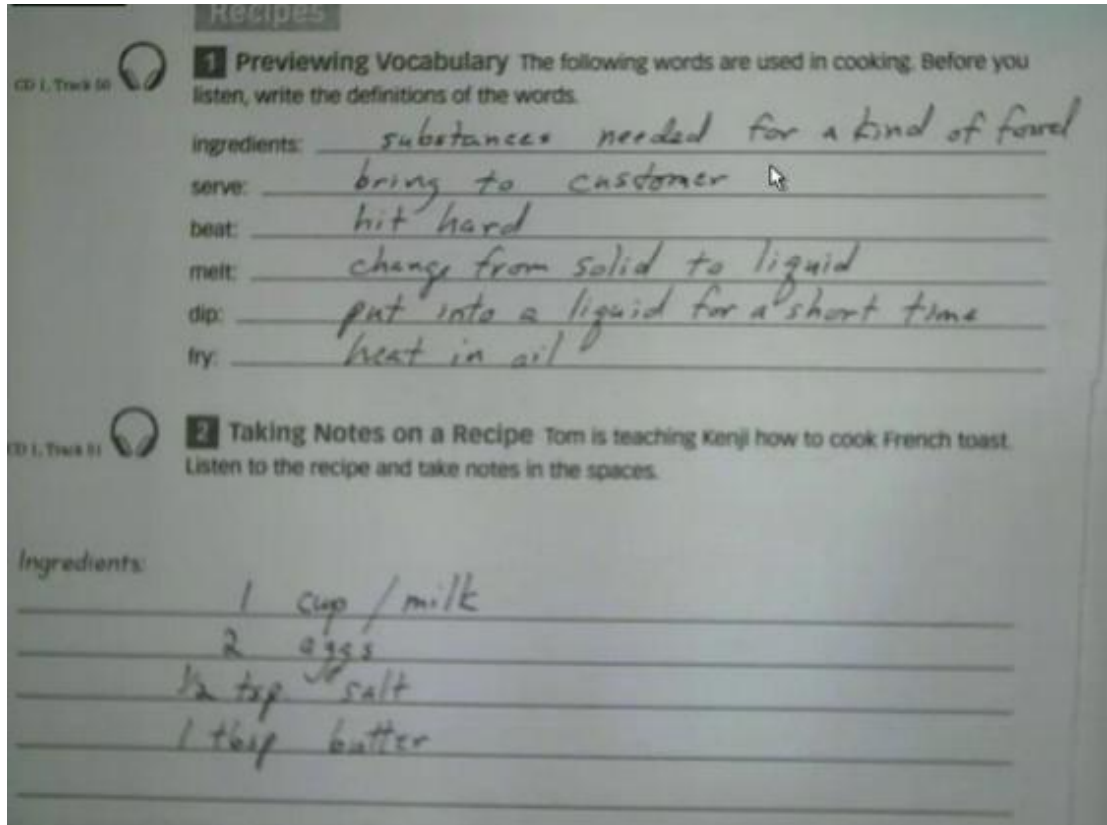 Recipes
CD 1, Track 50
1 Previewing Vocabulary The following words are used in cooking. Before you
listen, write the definitions of the words.
ingredients: substances needed for a kind of food
serve: bring to customer
beat: hit hard
melt: change from solid to liquid
dip: put into a liquid for a short time
fry: heat in oil
CD 1, Track 51
2 Taking Notes on a Recipe Tom is teaching Kenji how to cook French toast.
Listen to the recipe and take notes in the spaces.
Ingredients:
1 cup / milk
2 eggs
1/2 tsp salt
1 tbsp butter